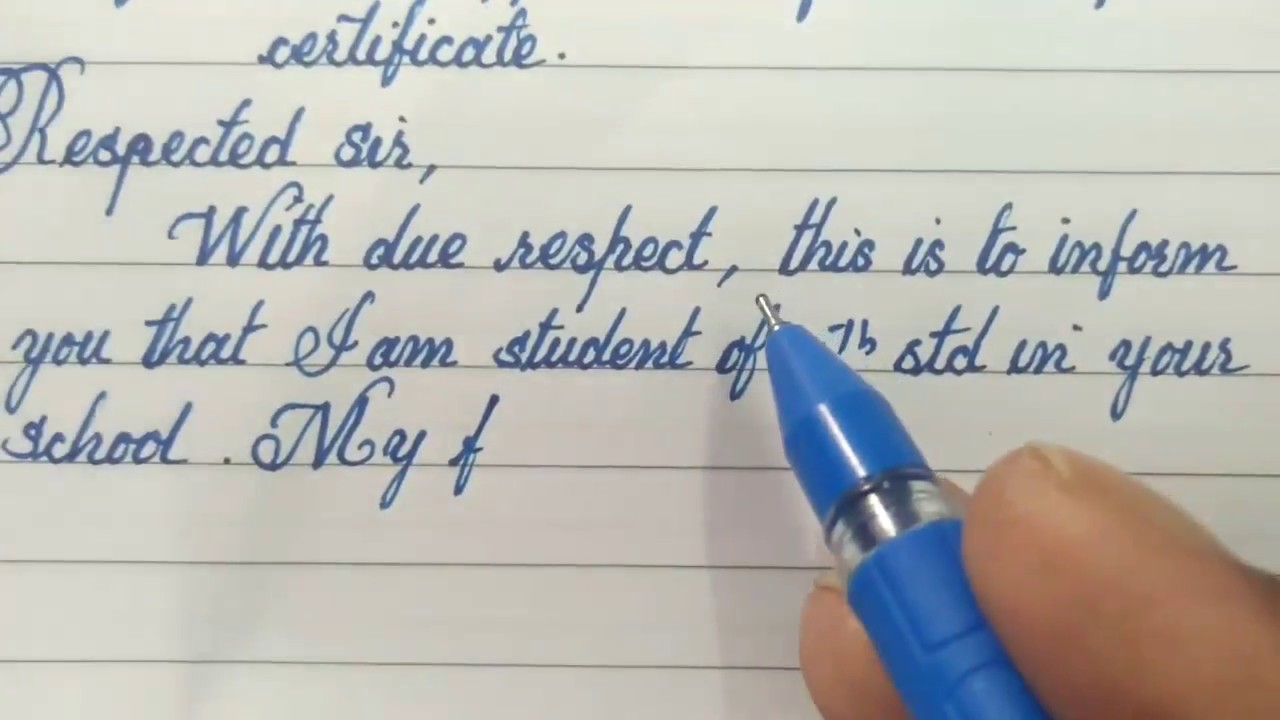 certificate.
Respected sir,
With due respect, this is to inform
you that I am student of std in your
school. My f